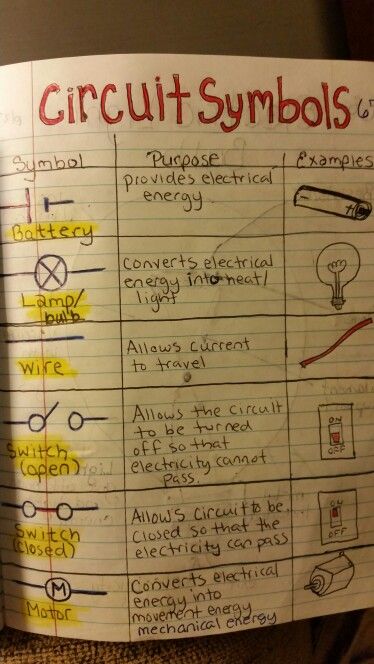 Circuit Symbols
Symbol
Purpose
Examples
Battery
provides electrical
energy
Lamp/
bulb
converts electrical
energy into heat/
light
wire
Allows current
to travel
Switch
(open)
Allows the circuit
to be turned
off so that
electricity cannot
pass.
ON
OFF
Switch
(closed)
Allows circuit to be
closed so that the
electricity can pass
ON
OFF
M
Motor
Converts electrical
energy into
movement energy
mechanical energy